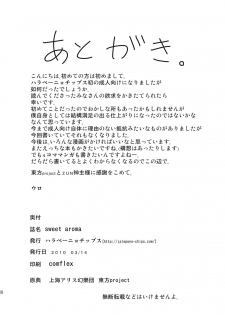 あとがき。
こんにちは、初めての方は初めまして。
ハラペーニョチップス初の成人向けになりましたが
如何だったでしょうか。
読んでくださったみなさんの欲求をかきたてられたら
幸いです。
初めてことだったのでおかしな所もあったかもしれませんが
僕自身としては結構満足の出る仕上がりになったのではないかな
なんて思っています。
今まで成人向け自体に理由のない抵抗みたいなものがありましたが
今回書いていてそれもなくなりました。
今後は、いろんな漫画がかければいいなと思っています。
またえっちな本もかきたいですね。(構想はあったりします)
でもコマコマンガも書きたいんですよねー。
だらだら書いてるとよくわからなくなるのでこの辺で。
東方projectとZUN神主様に感謝をこめて。
ウロ
奥付
誌名 sweet aroma
発行 ハラペーニョチップス[http://jalapeno-chips.com/]
発行日 2010 03/14
印刷 comflex
原典 上海アリス幻樂団 東方project
無断転載などはいけませんよ。